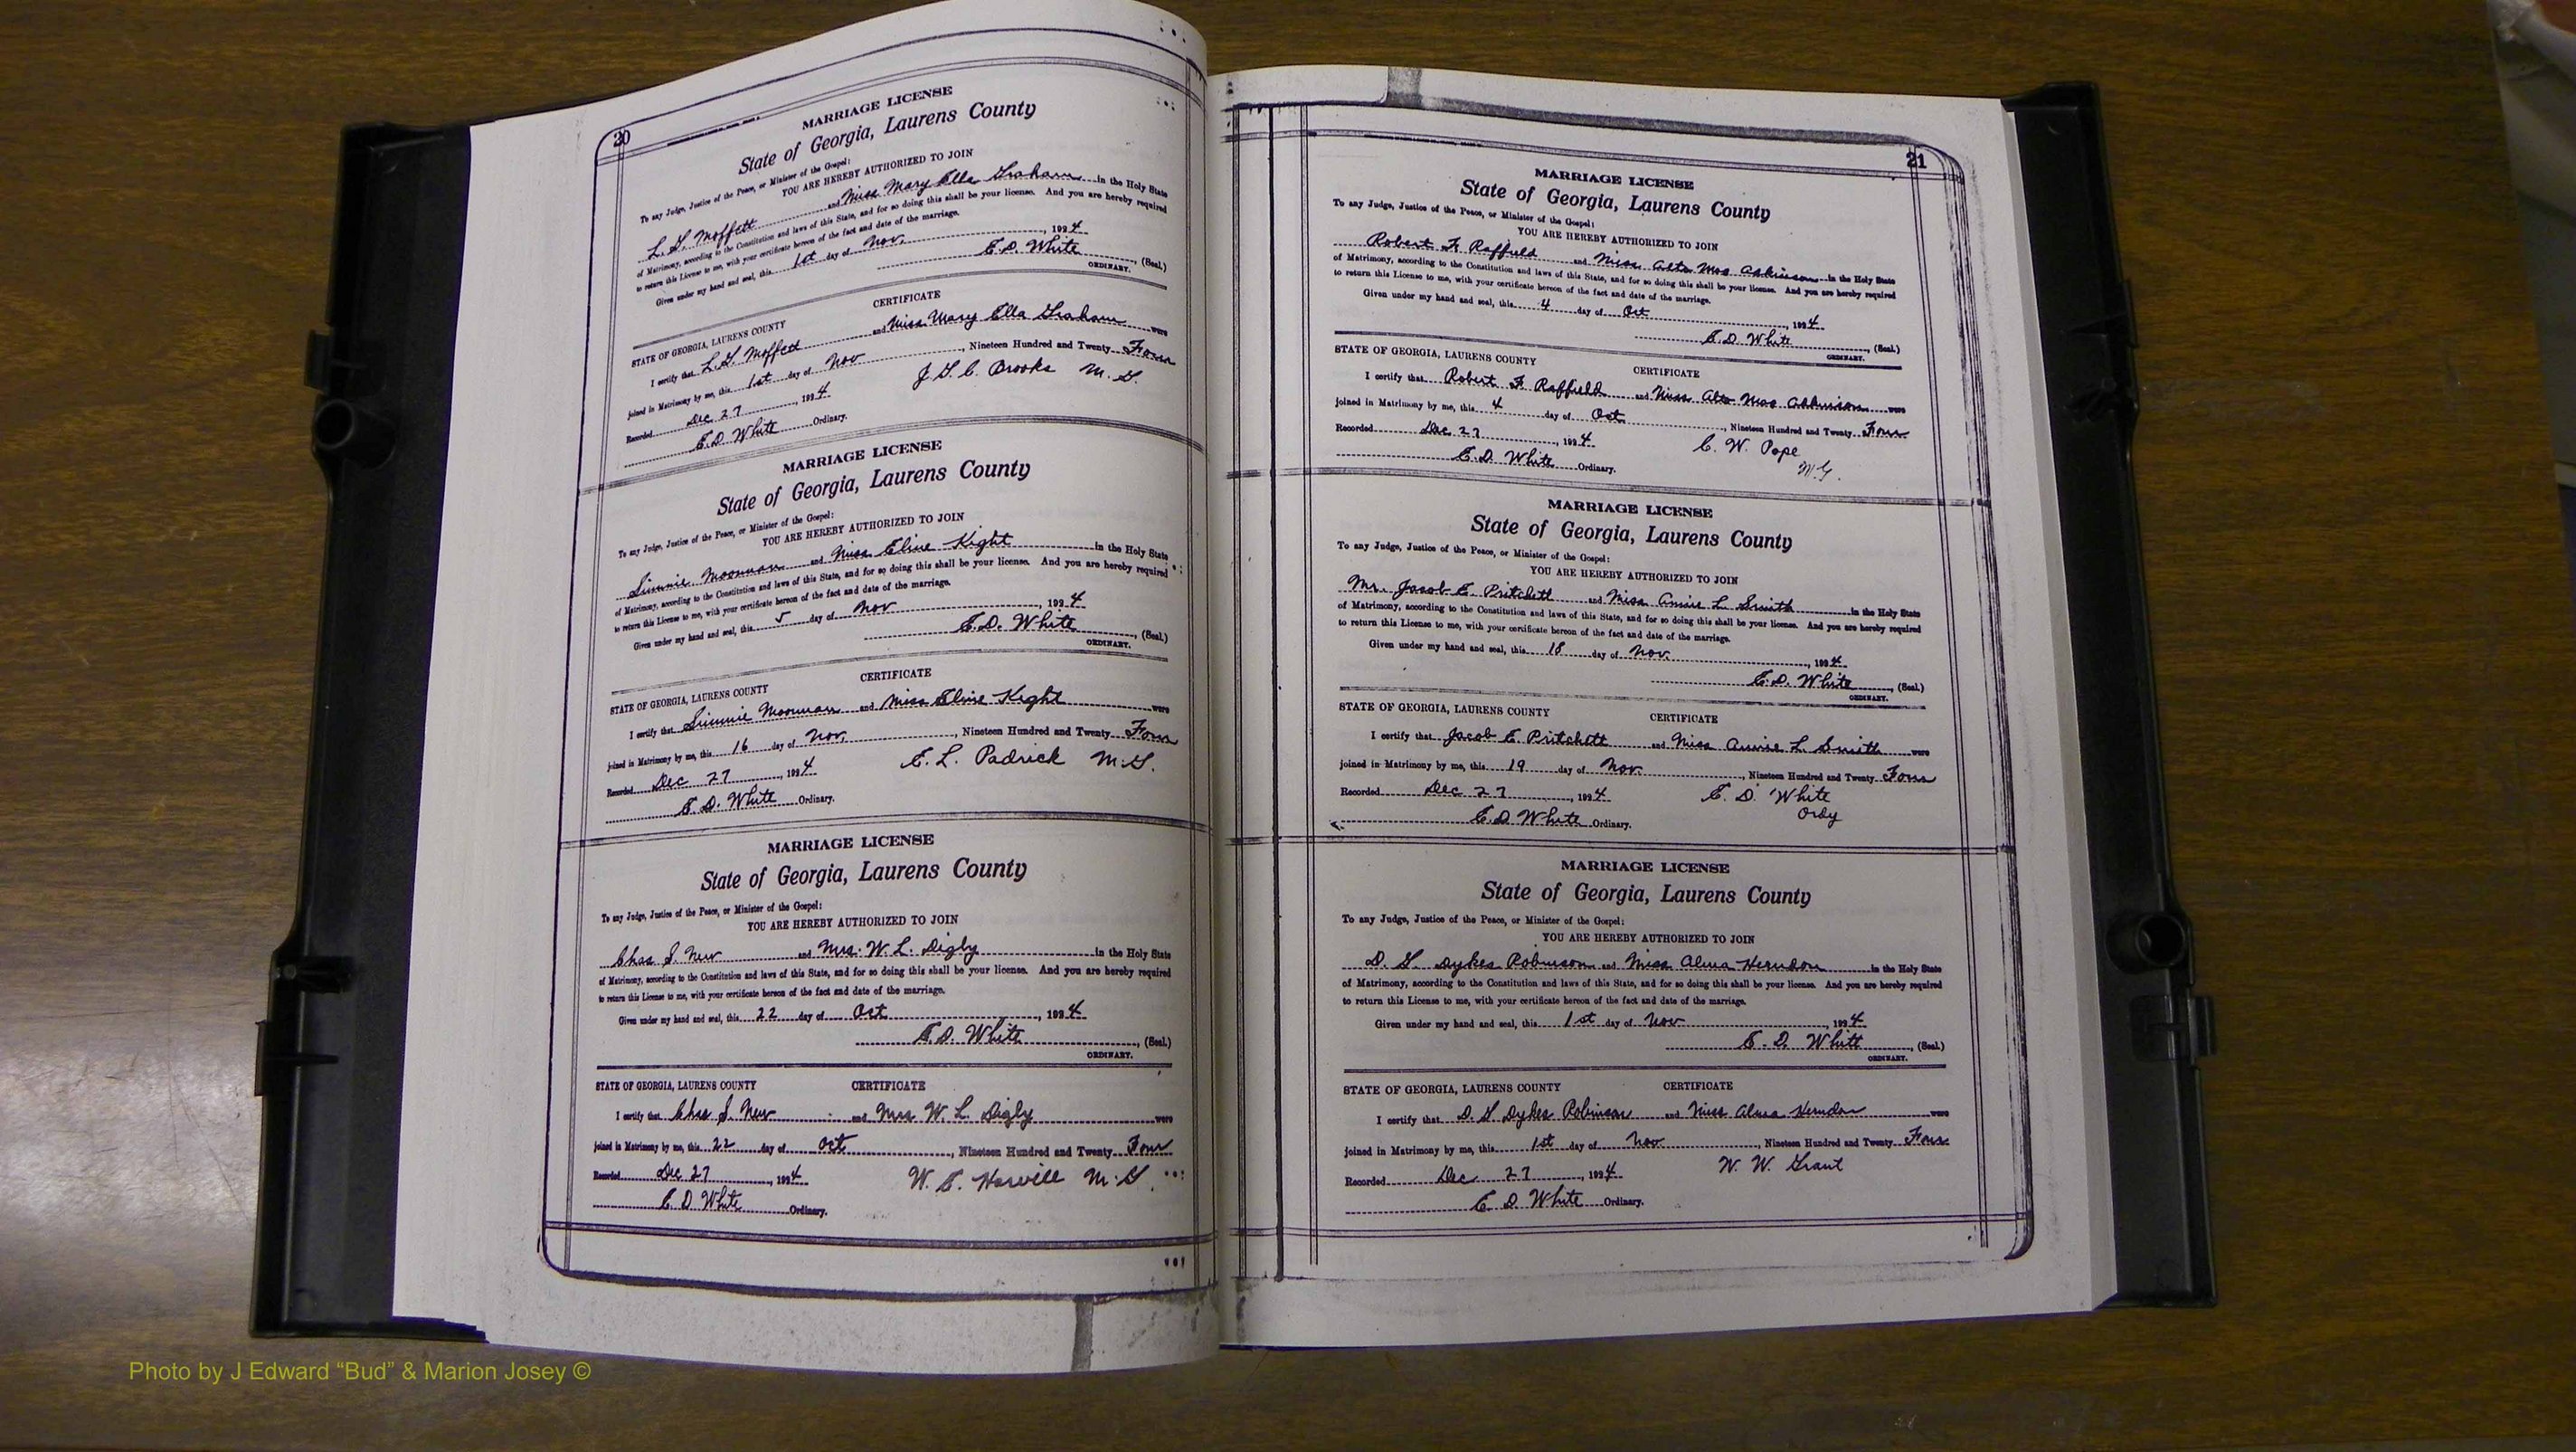 20
MARRIAGE LICENSE
State of Georgia, Laurens County
To any Judge, Justice of the Peace, or Minister of the Gospel:
YOU ARE HEREBY AUTHORIZED TO JOIN
L. G. Moffett and Miss Mary Ella Graham in the Holy State
of Matrimony, according to the Constitution and laws of this State, and for so doing this shall be your license. And you are hereby required
to return this License to me, with your certificate hereon of the fact and date of the marriage.
Given under my hand and seal, this 1st day of Nov. , 1924
E. D. White , (Seal.)
ORDINARY.
CERTIFICATE
STATE OF GEORGIA, LAURENS COUNTY
I certify that L. G. Moffett and Miss Mary Ella Graham were
joined in Matrimony by me, this 1st day of Nov , Nineteen Hundred and Twenty Four
Recorded Dec 27 , 1924 J. G. C. Brooks M. G.
E. D. White Ordinary.
MARRIAGE LICENSE
State of Georgia, Laurens County
To any Judge, Justice of the Peace, or Minister of the Gospel:
YOU ARE HEREBY AUTHORIZED TO JOIN
Moorman and Miss Eline Kight in the Holy State
of Matrimony, according to the Constitution and laws of this State, and for so doing this shall be your license. And you are hereby required
to return this License to me, with your certificate hereon of the fact and date of the marriage.
Given under my hand and seal, this 5 day of Nov , 1924
E. D. White , (Seal.)
ORDINARY.
CERTIFICATE
STATE OF GEORGIA, LAURENS COUNTY
I certify that Moorman and Miss Eline Kight were
joined in Matrimony by me, this 16 day of Nov. , Nineteen Hundred and Twenty Four
Recorded Dec 27 , 1924 E. L. Padrick M. G.
E. D. White Ordinary.
MARRIAGE LICENSE
State of Georgia, Laurens County
To any Judge, Justice of the Peace, or Minister of the Gospel:
YOU ARE HEREBY AUTHORIZED TO JOIN
Chas S. New and Mrs. W. L. Digby in the Holy State
of Matrimony, according to the Constitution and laws of this State, and for so doing this shall be your license. And you are hereby required
to return this License to me, with your certificate hereon of the fact and date of the marriage.
Given under my hand and seal, this 22 day of Oct , 1924
E. D. White , (Seal.)
ORDINARY.
STATE OF GEORGIA, LAURENS COUNTY CERTIFICATE
I certify that Chas S. New and Mrs W. L. Digby were
joined in Matrimony by me, this 22 day of Oct , Nineteen Hundred and Twenty Four
Recorded Dec 27 , 1924 W. E. Harvill M. G.
E. D. White Ordinary.
21
MARRIAGE LICENSE
State of Georgia, Laurens County
To any Judge, Justice of the Peace, or Minister of the Gospel:
YOU ARE HEREBY AUTHORIZED TO JOIN
Robert F. Raffield and Miss Alta Mae Adkinson in the Holy State
of Matrimony, according to the Constitution and laws of this State, and for so doing this shall be your license. And you are hereby required
to return this License to me, with your certificate hereon of the fact and date of the marriage.
Given under my hand and seal, this 4 day of Oct , 1924
E. D. White , (Seal.)
ORDINARY.
STATE OF GEORGIA, LAURENS COUNTY CERTIFICATE
I certify that Robert F. Raffield and Miss Alta Mae Adkinson were
joined in Matrimony by me, this 4 day of Oct , Nineteen Hundred and Twenty Four
Recorded Dec 27 , 1924 C. W. Pope
E. D. White Ordinary. M. G.
MARRIAGE LICENSE
State of Georgia, Laurens County
To any Judge, Justice of the Peace, or Minister of the Gospel:
YOU ARE HEREBY AUTHORIZED TO JOIN
Mr. Jacob E. Pritchett and Miss Annie L. Smith in the Holy State
of Matrimony, according to the Constitution and laws of this State, and for so doing this shall be your license. And you are hereby required
to return this License to me, with your certificate hereon of the fact and date of the marriage.
Given under my hand and seal, this 18 day of Nov. , 1924
E. D. White , (Seal.)
ORDINARY.
STATE OF GEORGIA, LAURENS COUNTY CERTIFICATE
I certify that Jacob E. Pritchett and Miss Annie L. Smith were
joined in Matrimony by me, this 19 day of Nov. , Nineteen Hundred and Twenty Four
Recorded Dec 27 , 1924 E. D. White
E. D. White Ordinary. Ordy
MARRIAGE LICENSE
State of Georgia, Laurens County
To any Judge, Justice of the Peace, or Minister of the Gospel:
YOU ARE HEREBY AUTHORIZED TO JOIN
D. G. Dykes Robinson and Miss Alma Herndon in the Holy State
of Matrimony, according to the Constitution and laws of this State, and for so doing this shall be your license. And you are hereby required
to return this License to me, with your certificate hereon of the fact and date of the marriage.
Given under my hand and seal, this 1st day of Nov , 1924
E. D. White , (Seal.)
ORDINARY.
STATE OF GEORGIA, LAURENS COUNTY CERTIFICATE
I certify that D. G. Dykes Robinson and Miss Alma Herndon were
joined in Matrimony by me, this 1st day of Nov , Nineteen Hundred and Twenty Four
Recorded Dec 27 , 1924 W. W. Grant
E. D. White Ordinary.
Photo by J Edward “Bud” & Marion Josey ©